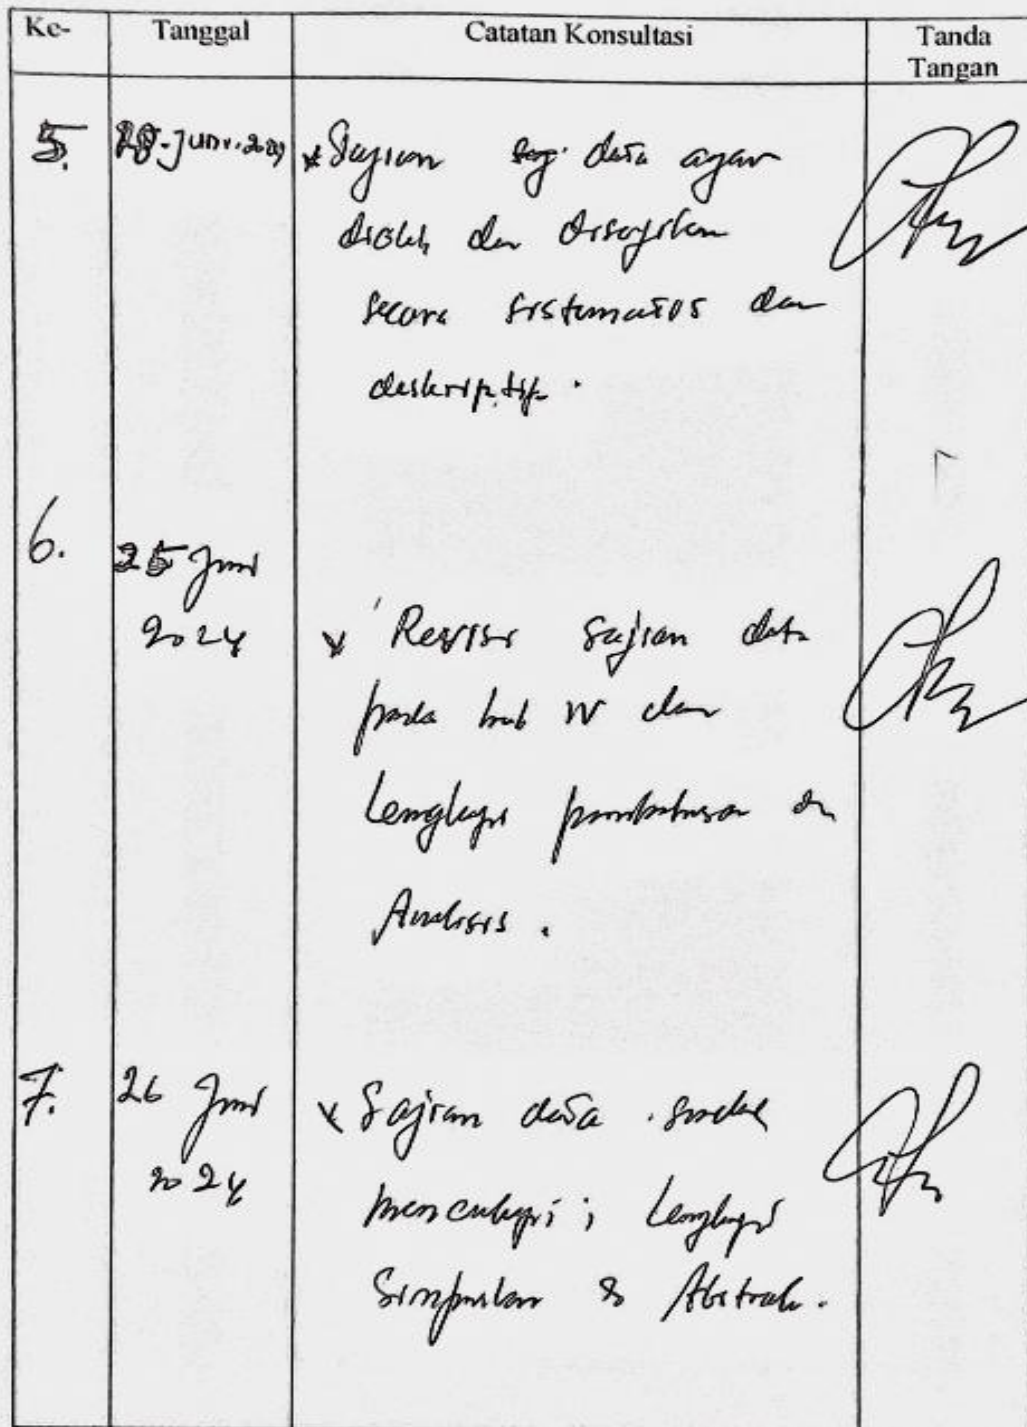 Ke- Tanggal Catatan Konsultasi Tanda Tangan
5. Juni 2024 * Sajian data agar
diolah dan disajikan
secara sistematis dan
deskriptip.
6. 25 Juni
2024 * Revisi sajian data
pada bab IV dan
Lengkapi pembahasan dan
Analisis.
7. 26 Juni * Sajian data sudah
2024 mencukupi; Lengkapi
Simpulan & Abstrak.